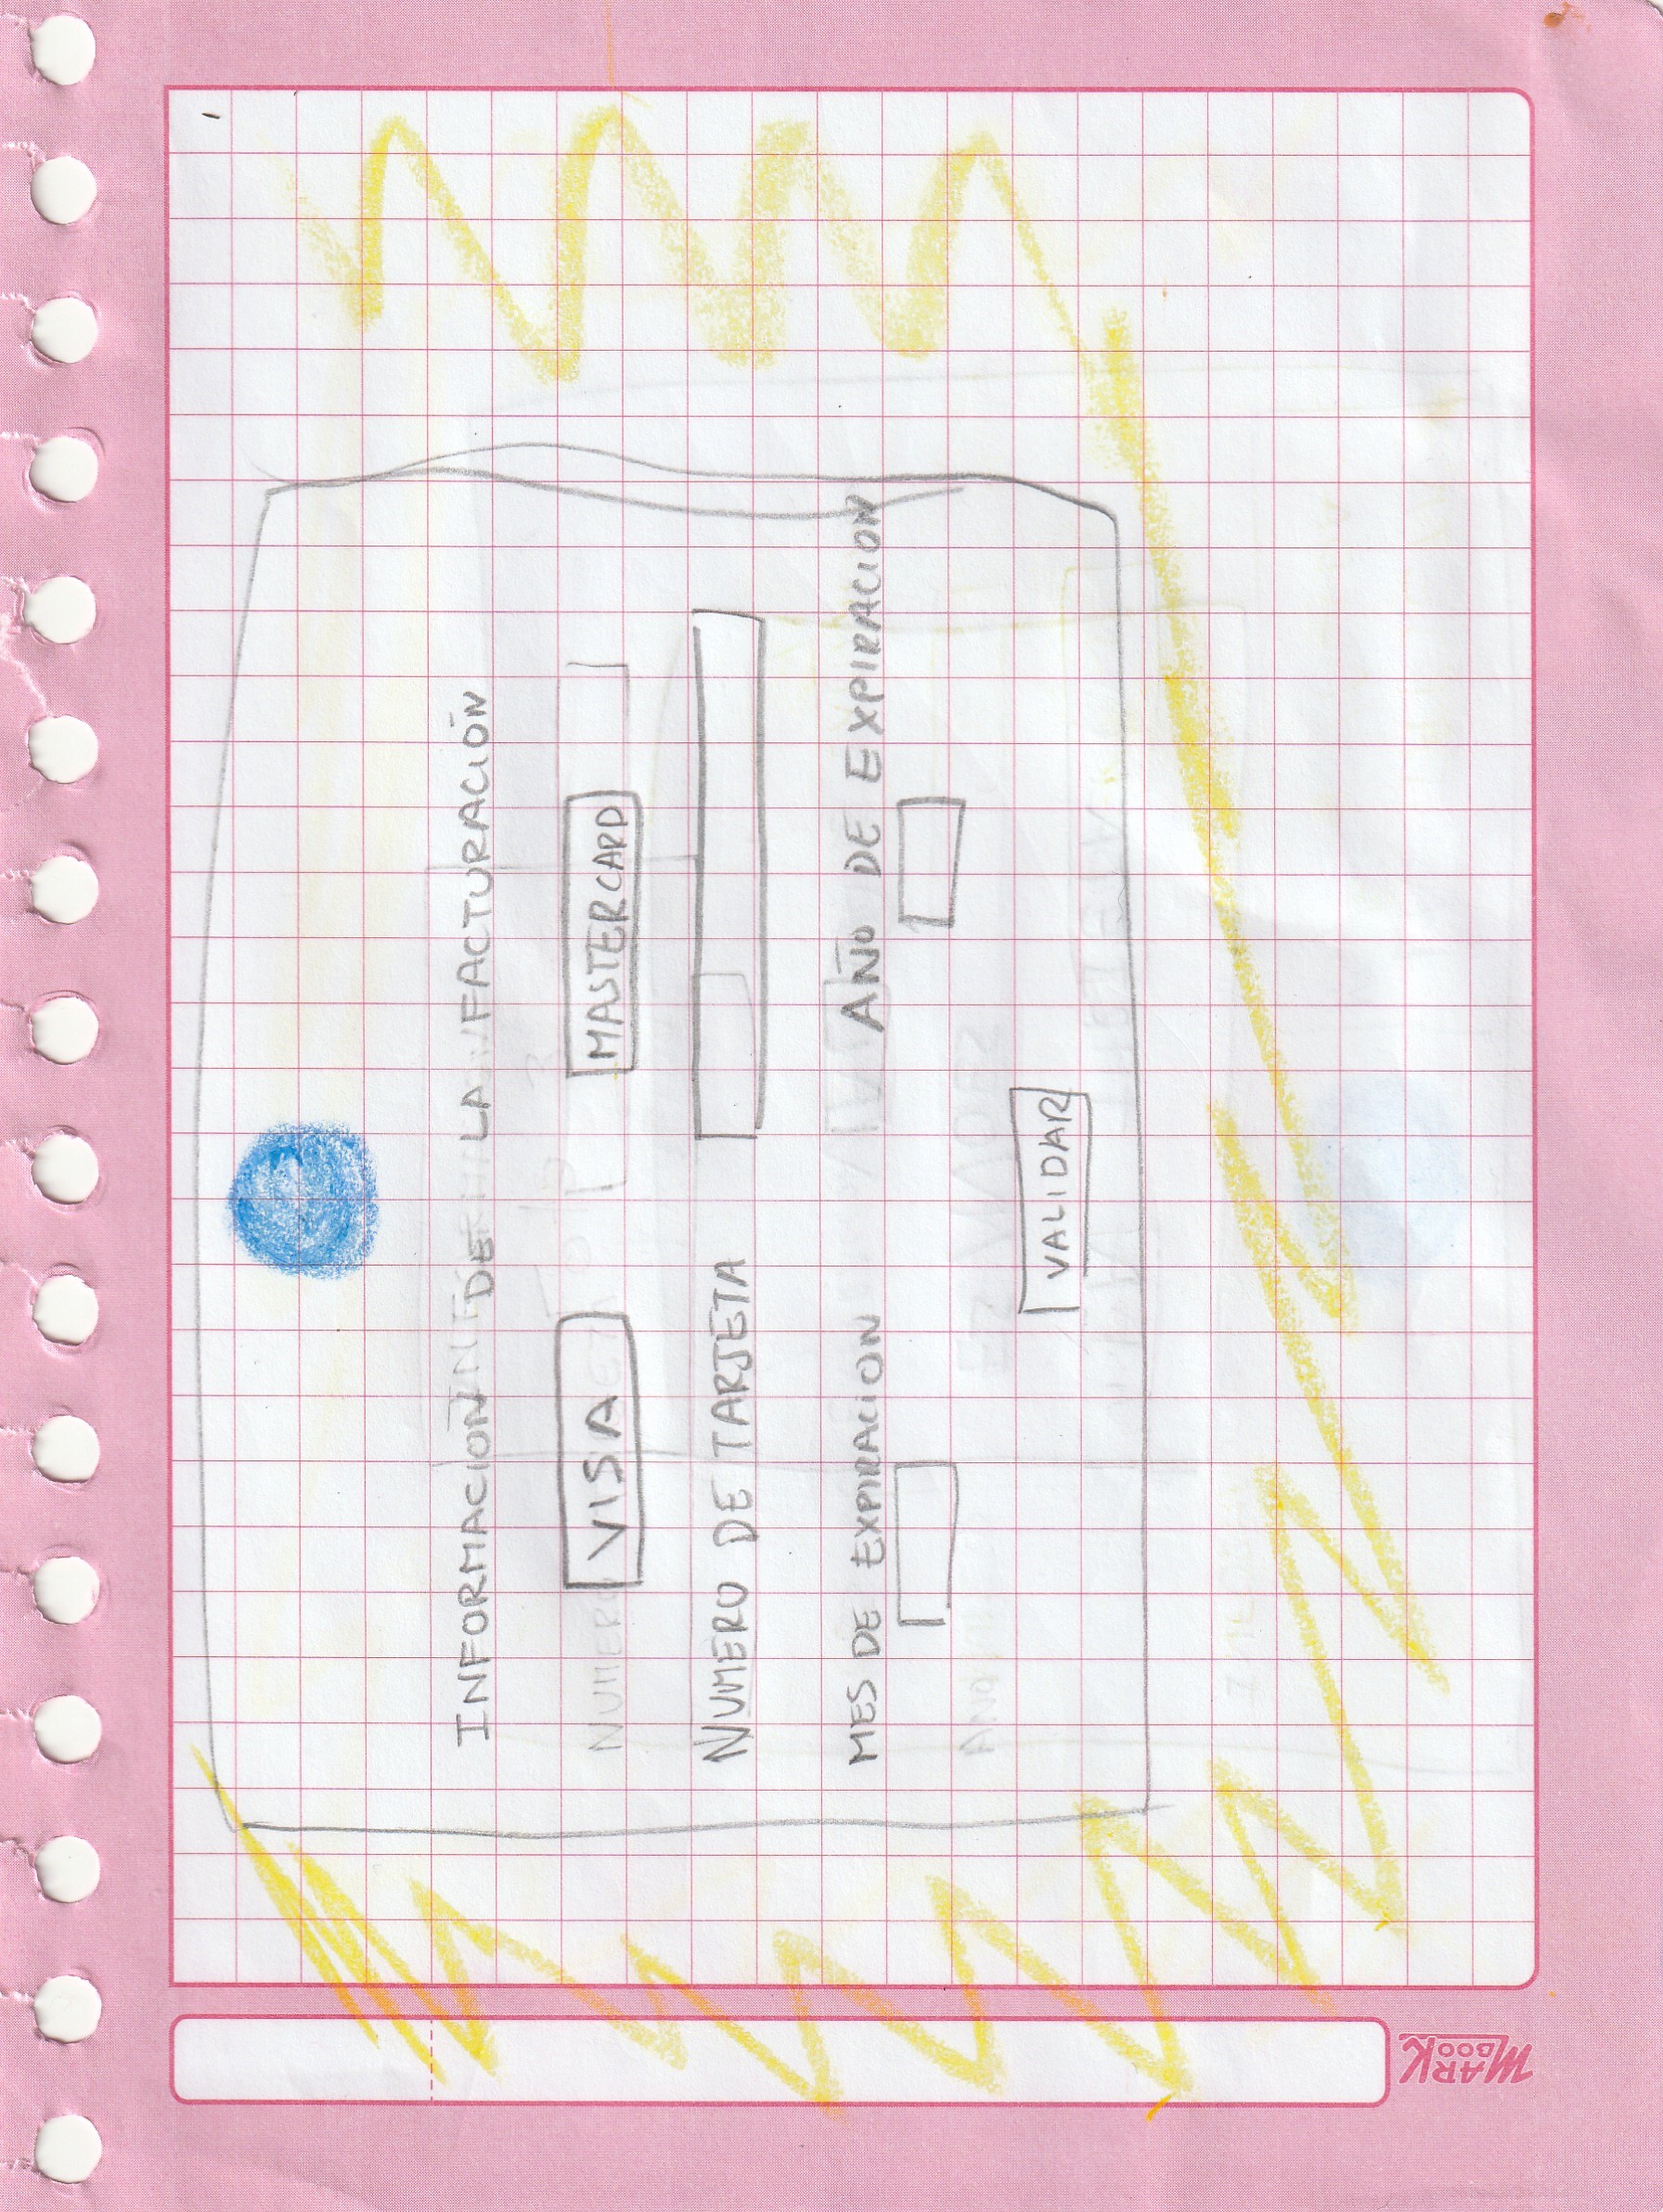 INFORMACIÓN DE LA FACTURACIÓN
VISA MASTERCARD
NUMERO DE TARJETA
MES DE EXPIRACION AÑO DE EXPIRACION
VALIDAR
MARK BOOK